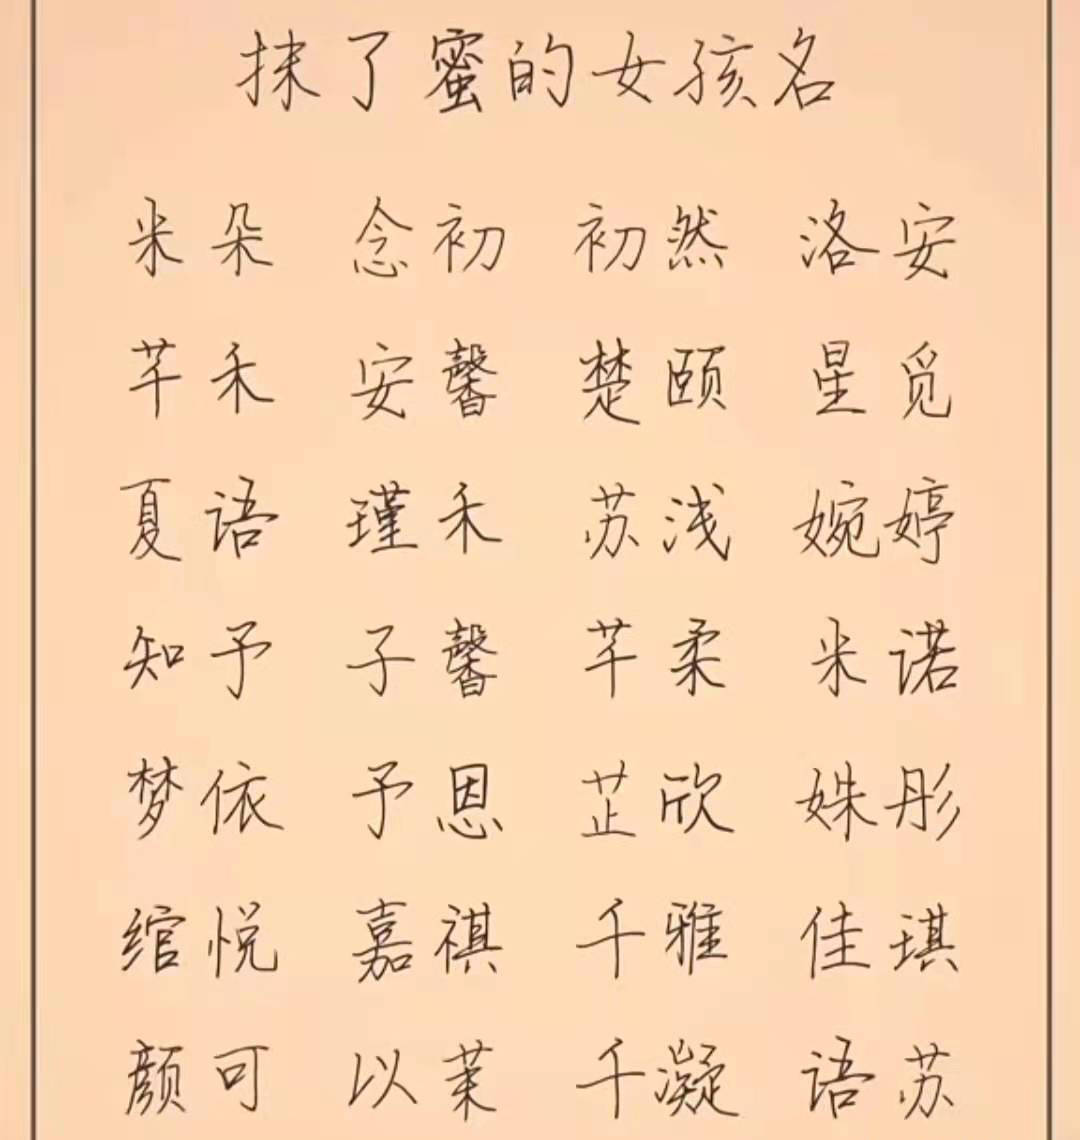 抹了蜜的女孩名
米朵 念初 初然 洛安
芊禾 安馨 楚颐 星觅
夏语 瑾禾 苏浅 婉婷
知予 子馨 芊柔 米诺
梦依 予恩 芷欣 姝彤
绾悦 嘉祺 千雅 佳琪
颜可 以茉 千凝 语苏